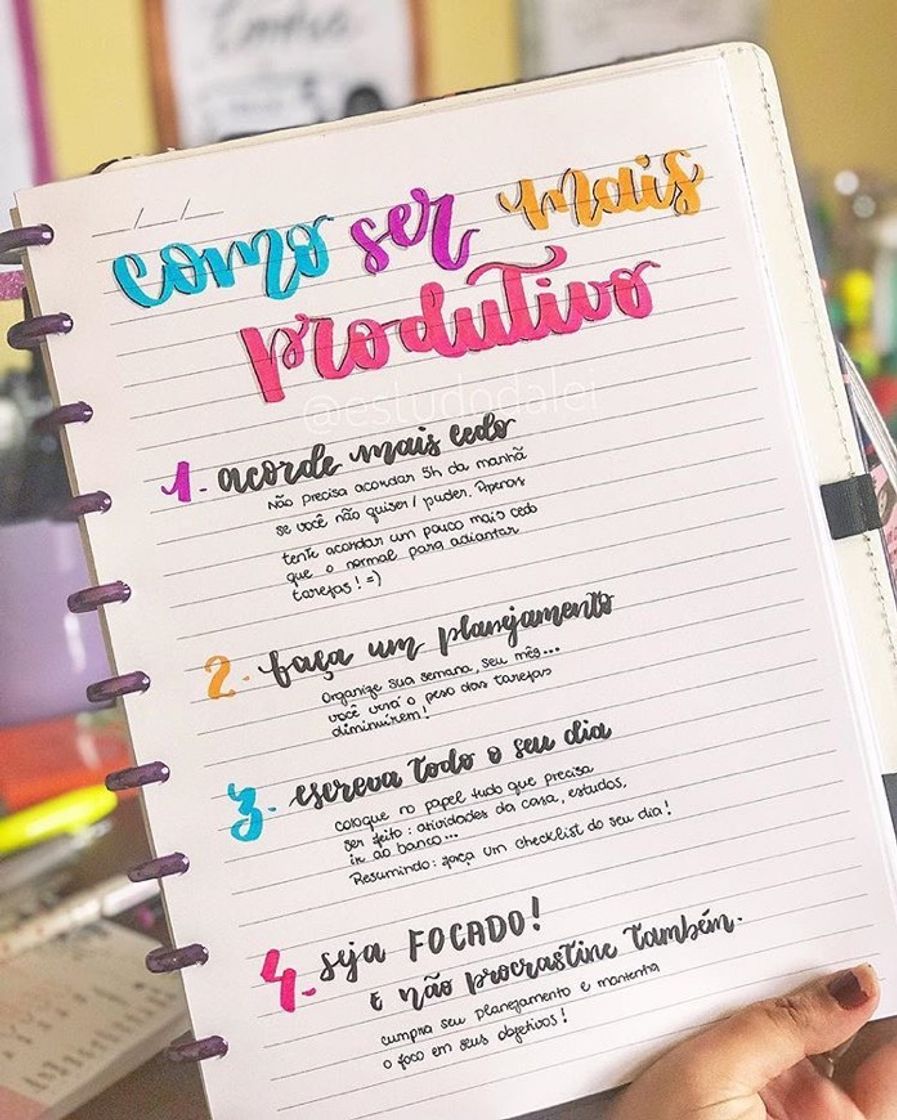 como ser mais
produtivo
@estudodalei
1. acorde mais cedo
Não precisa acordar 5h da manhã
se você não quiser/puder. Apenas
tente acordar um pouco mais cedo
que o normal para adiantar
tarefas! =)
2. faça um planejamento
Organize sua semana, seu mês...
você verá o peso das tarefas
diminuírem!
3. escreva todo o seu dia
coloque no papel tudo que precisa
ser feito: atividades da casa, estudos,
ir ao banco...
Resumindo: faça um checklist do seu dia!
4. seja FOCADO!
E não procrastine também.
cumpra seu planejamento e mantenha
o foco em seus objetivos!